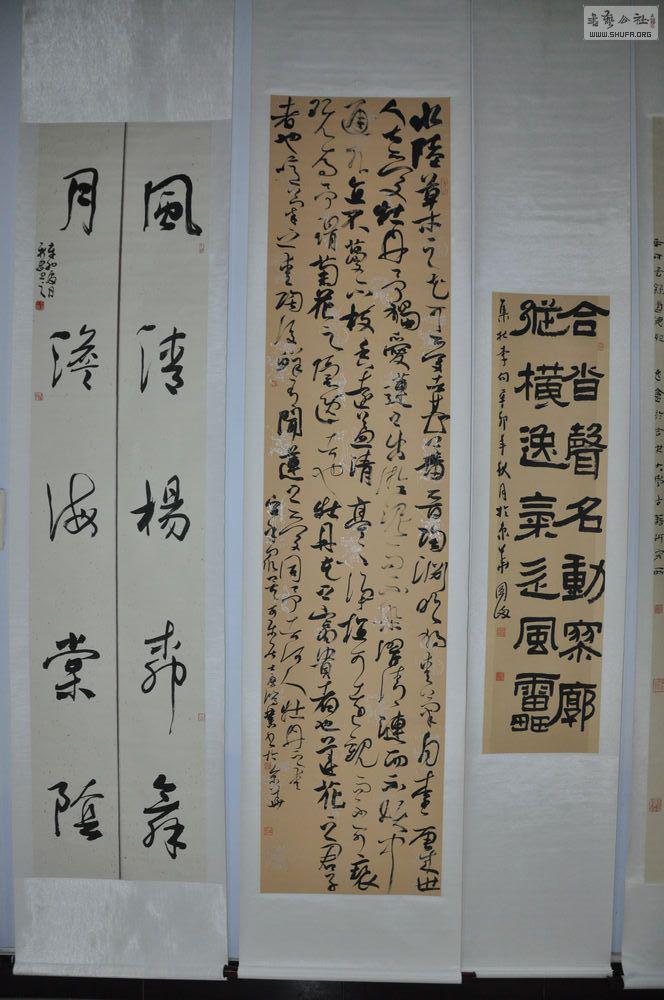 書藝公社
WWW.SHUFA.ORG
合沓聲名動寥廓
縱橫逸氣走風靁
句辛卯年秋月於
水陸草木之花可愛者甚蕃晉陶淵明獨愛菊自李唐來世
人甚愛牡丹予獨愛蓮之出淤泥而不染濯清漣而不妖中
通外直不蔓不枝香遠益清亭亭淨植可遠觀而不可褻
玩焉予謂菊花之隱逸者也牡丹花之富貴者也蓮花之君子
者也噫菊之愛陶後鮮有聞蓮之愛同予者何人牡丹之愛
宜乎眾矣
風清楊柳舞
月澹海棠陰